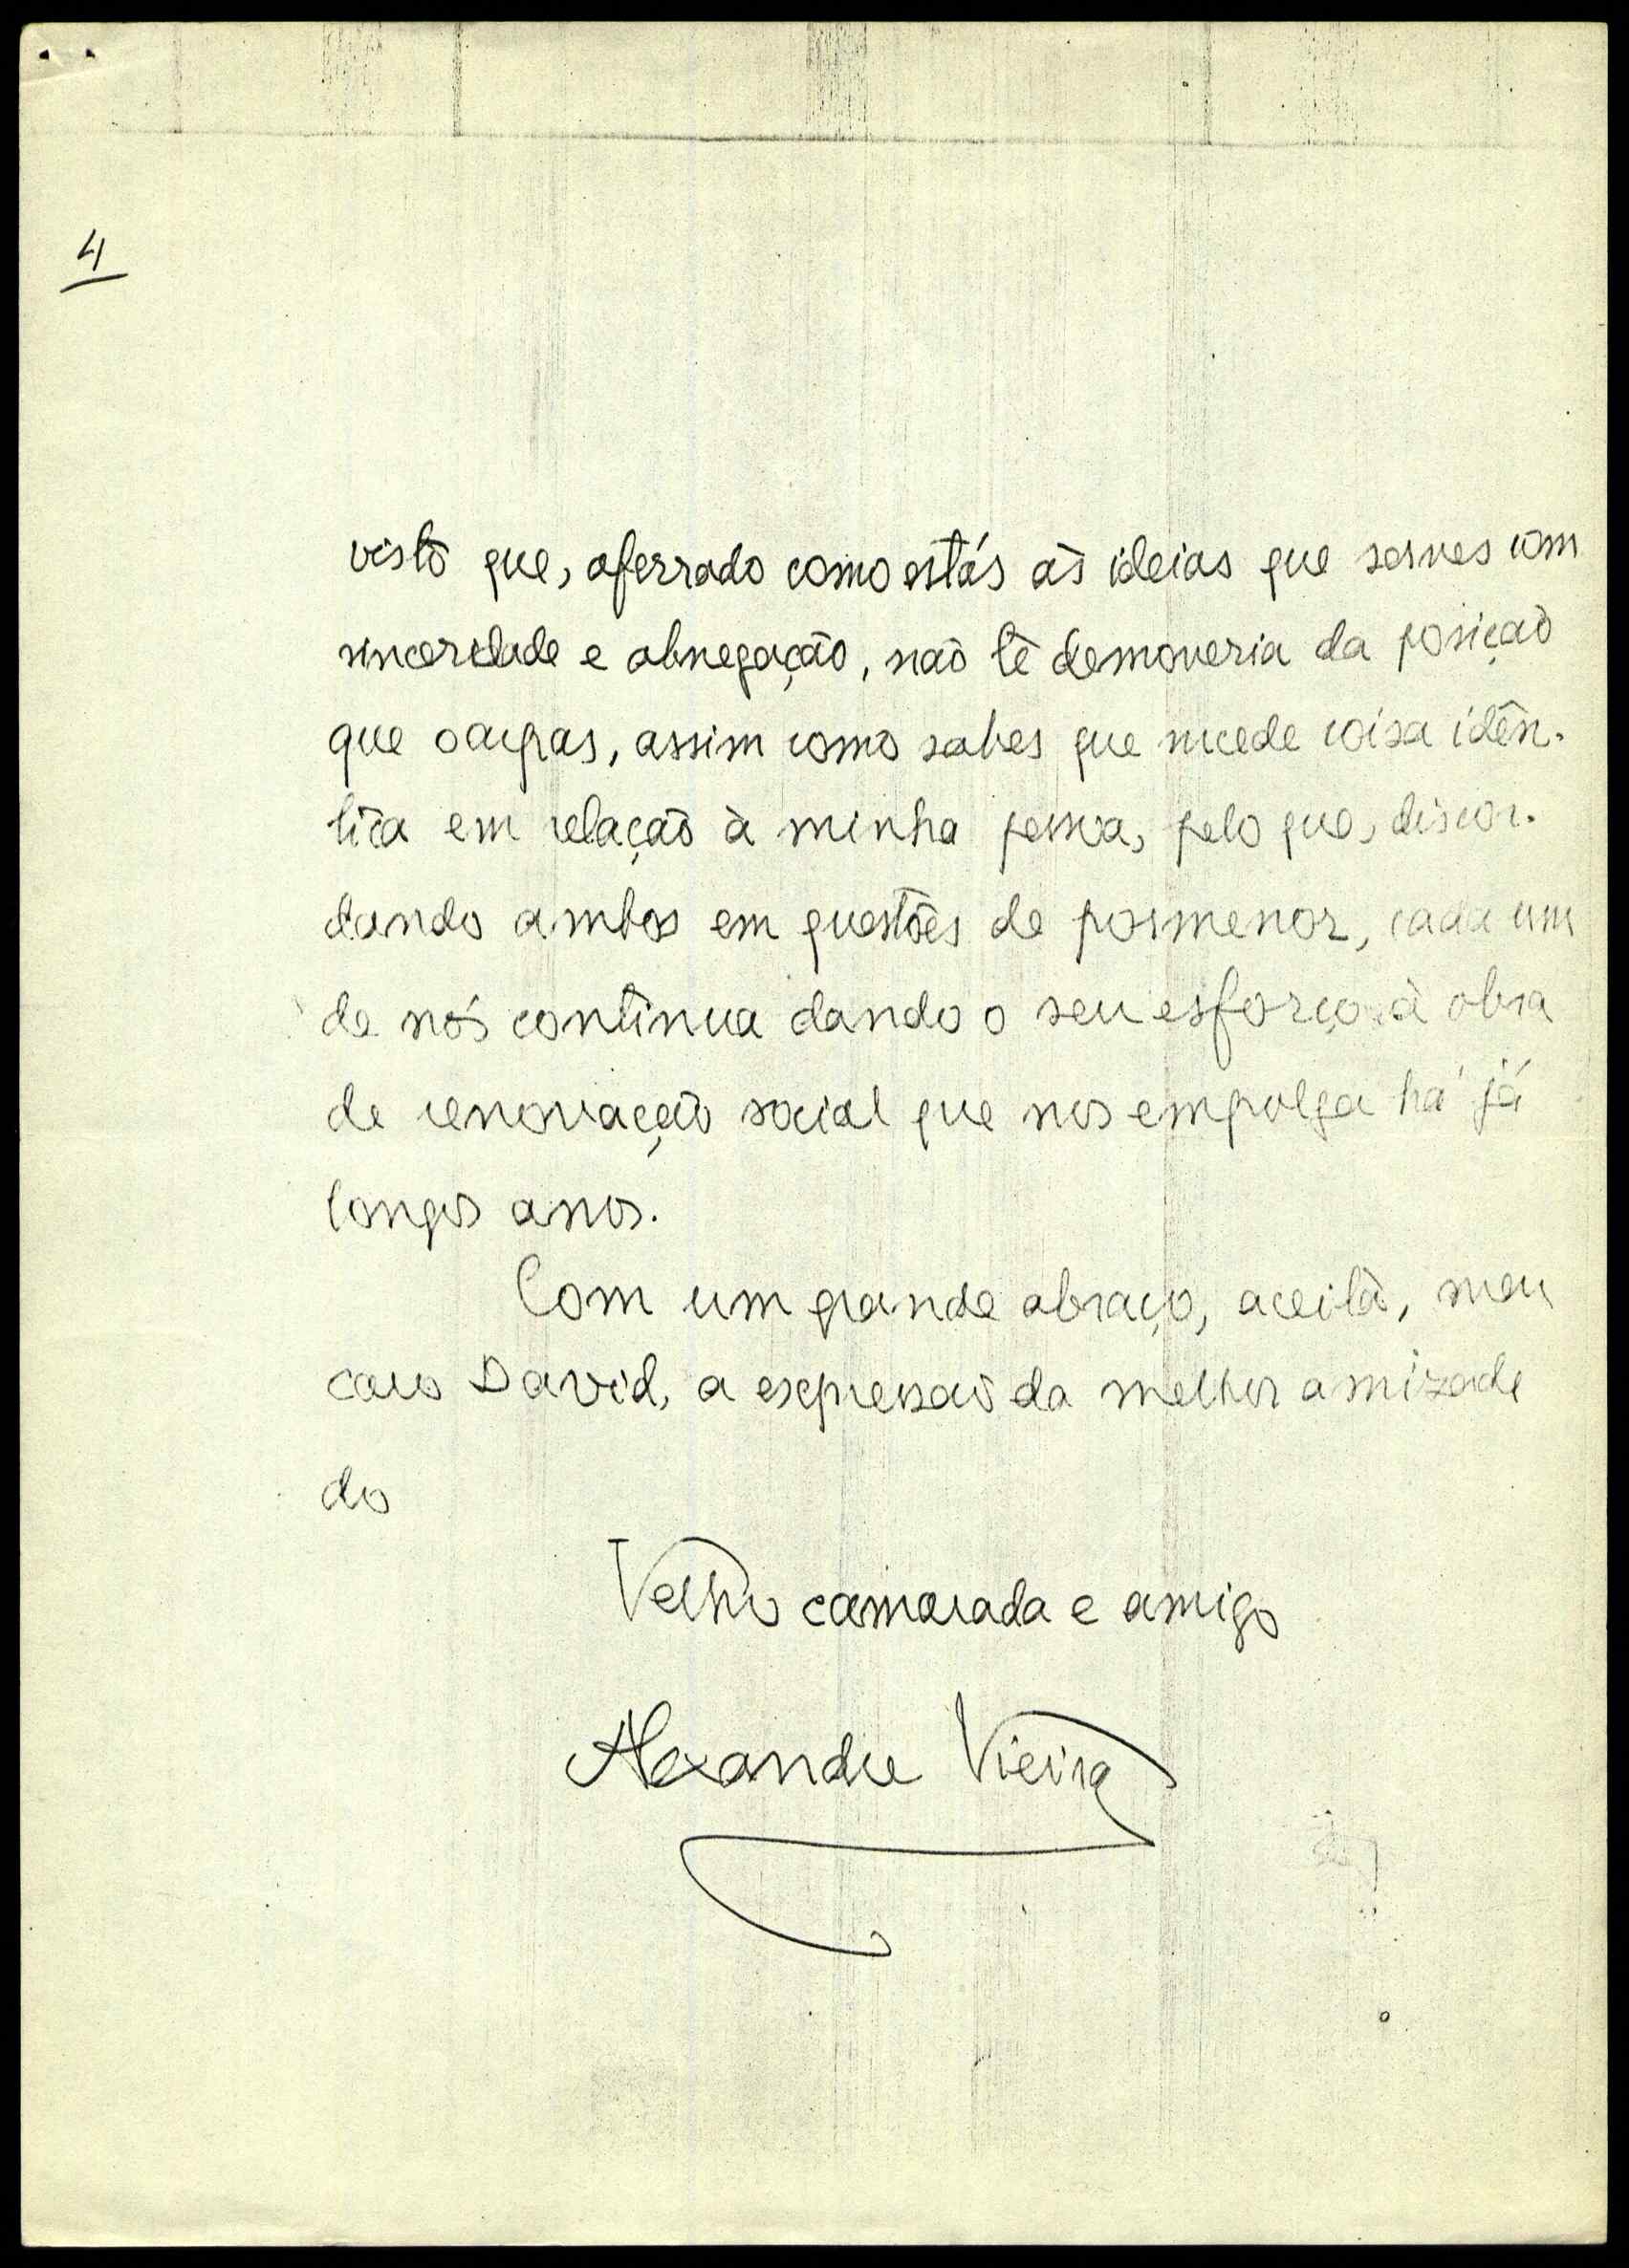 4
visto que, aferrado como estás às ideias que serves com
sinceridade e abnegação, não te demoveria da posição
que ocupas, assim como sabes que sucede coisa idên-
tica em relação à minha pessoa, pelo que, discor-
dando ambos em questões de pormenor, cada um
de nós continua dando o seu esforço à obra
de renovação social que nos empolga há já
longos anos.
Com um grande abraço, aceita, meu
caro David, a expressão da melhor amizade
do
Velho camarada e amigo
Alexandre Vieira